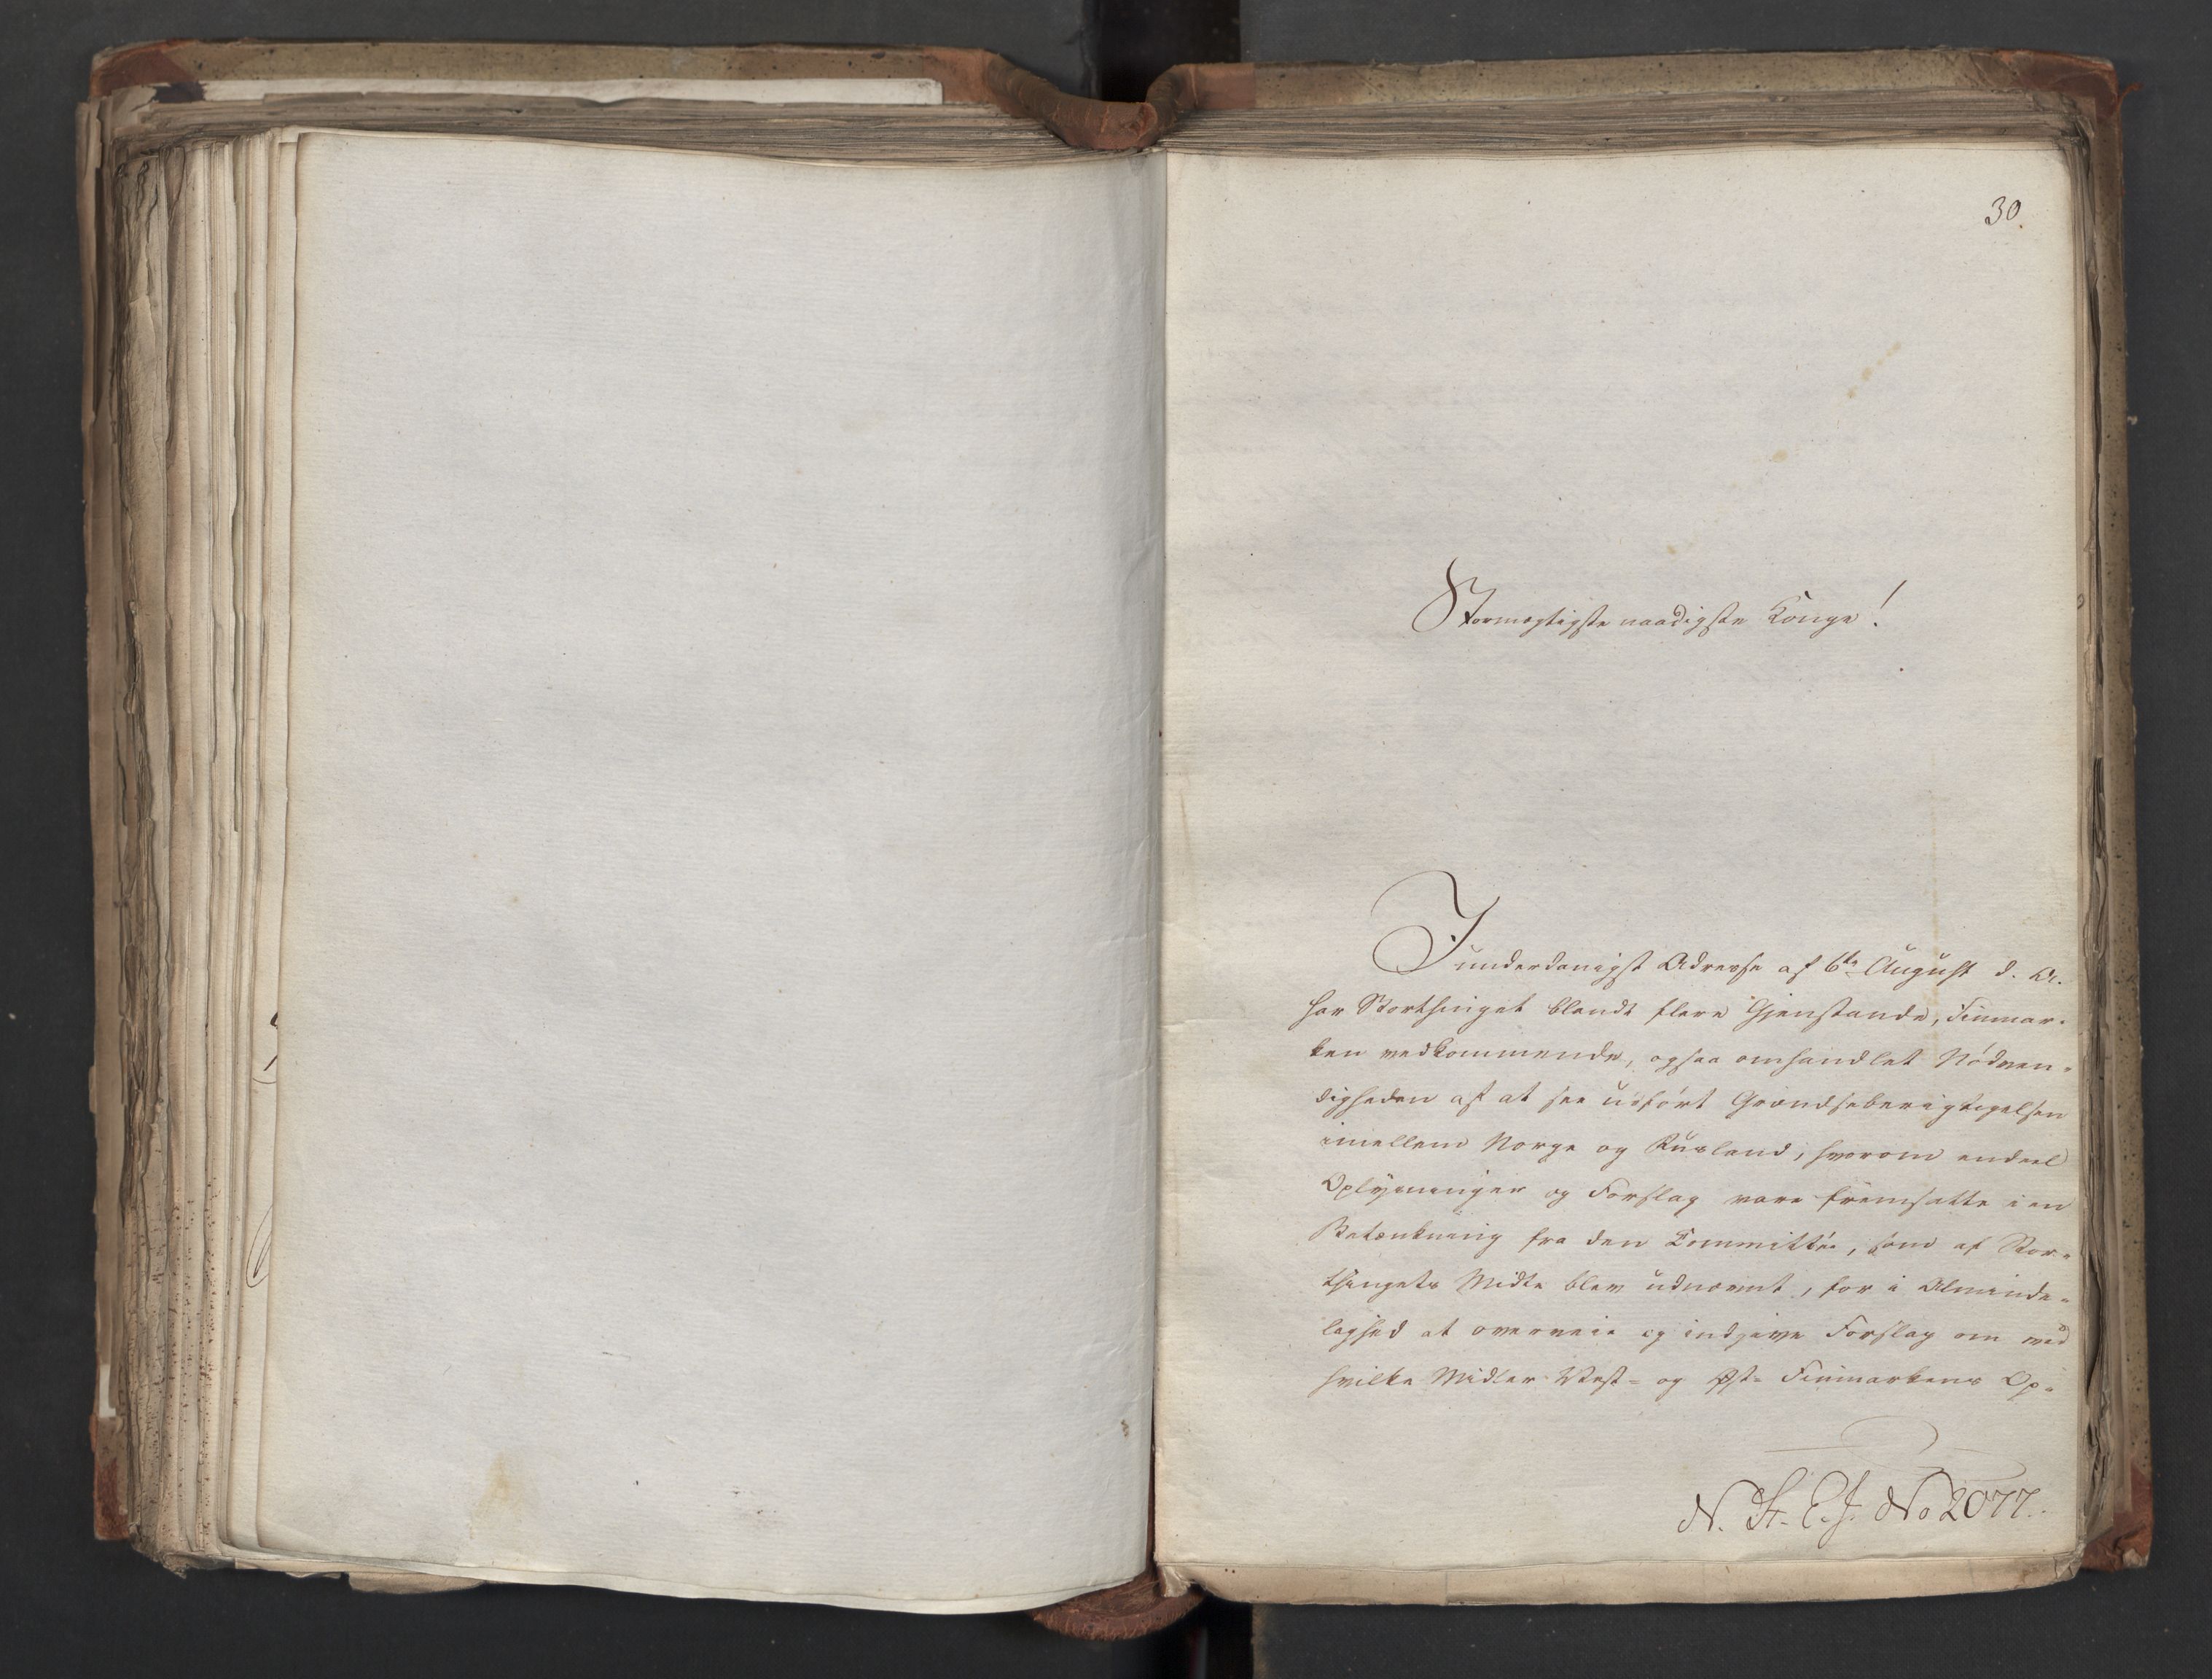 30.
Stormægtigste naadigste Konge!
I underdanigst Adresse af 6te August d. A.
har Storthinget blandt flere Gjenstande, Finmar-
ken vedkommende, ogsaa omhandlet Nödven-
digheden af at see udfört Grændseberigtigelsen
imellem Norge og Rusland, hvorom endeel
Oplysninger og Forslag vare fremsatte i en
Betænkning fra den Committée, som af Stor-
thingets Midte blev udnævnt, for i Alminde-
lighed at overveie og indgive Forslag om ved
hvilke Midler Vest- og Øst- Finmarkens Op-
N. St. E. J. No 2077.